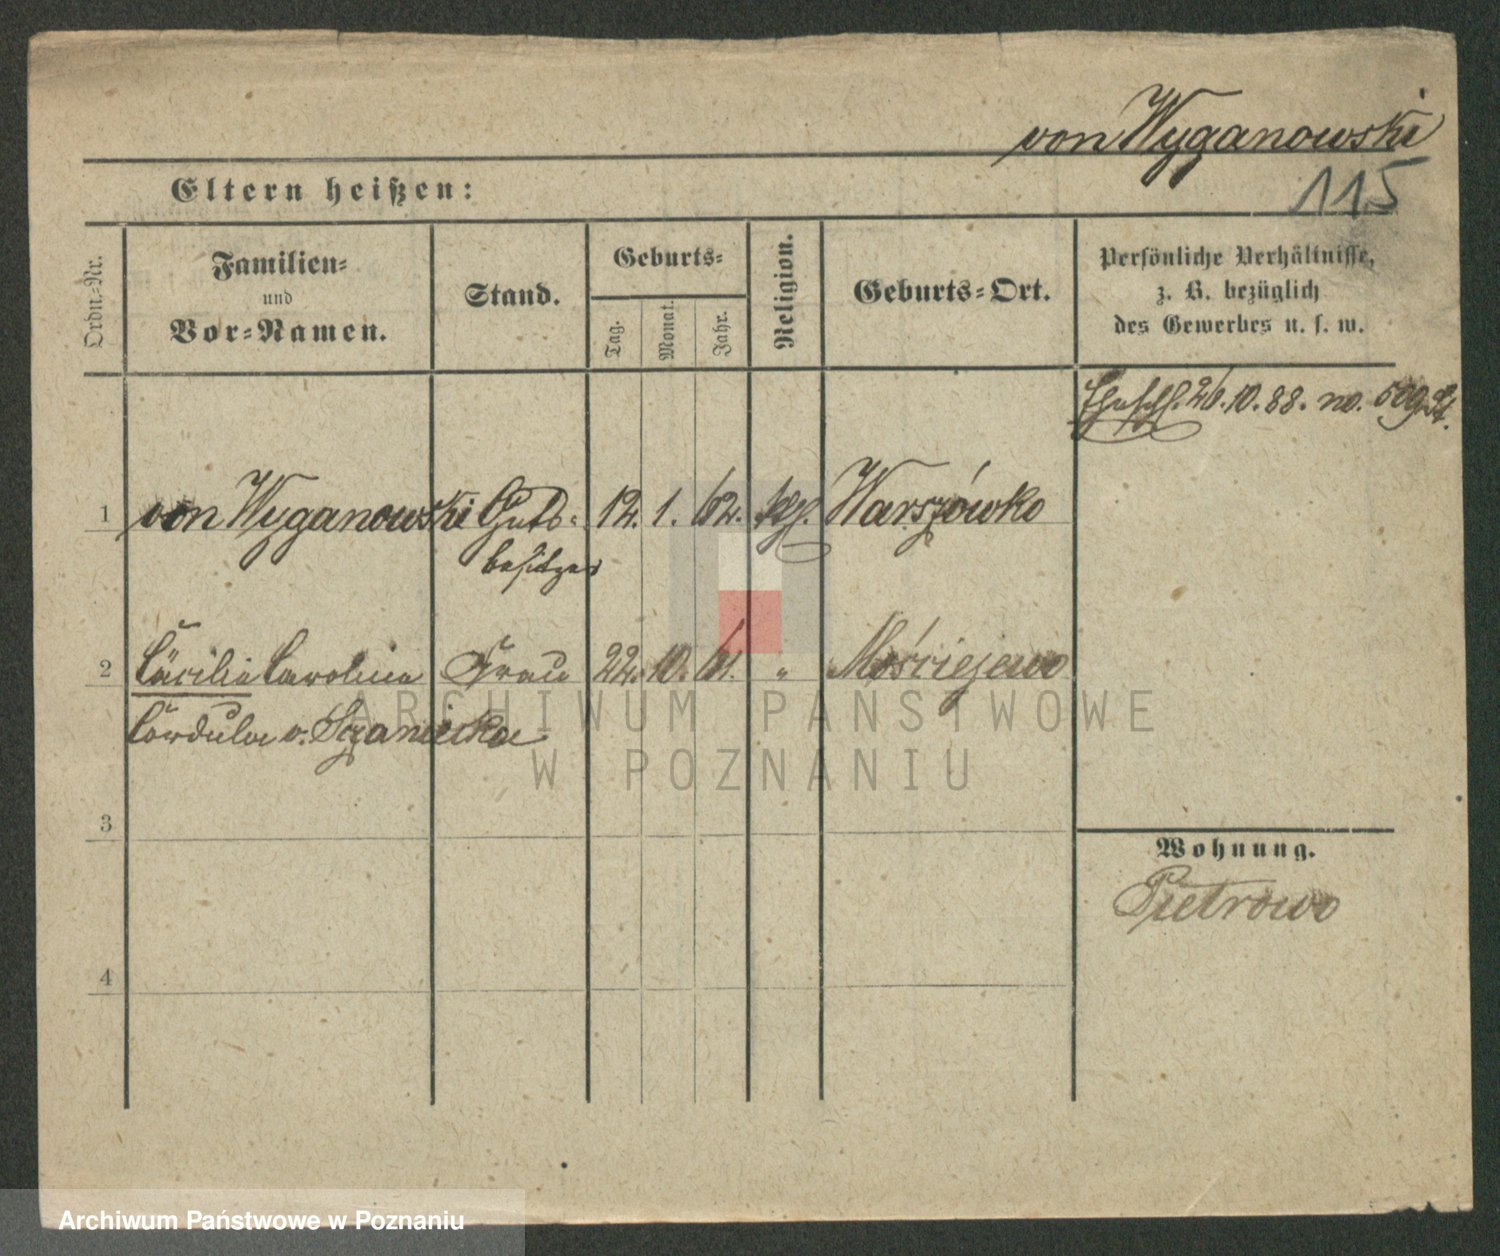 von Wyganowski
115
Eltern heißen:
Ordn.-Nr.
Familien-
und
Vor-Namen.
Stand.
Geburts-
Tag.
Monat.
Jahr.
Religion.
Geburts-Ort.
Persönliche Verhältnisse,
z. B. bezüglich
des Gewerbes u. s. w.
26.10.88. no.
1 von Wyganowski Guts- 12. 1. 62. Warszówko
besitzer
2 Cäcilie Carolina Frau 22. 10. 61. " Mościejewo
Cordula v. Szaniecka
3
Wohnung.
Pietrowo
4
ARCHIWUM PAŃSTWOWE
W POZNANIU
Archiwum Państwowe w Poznaniu